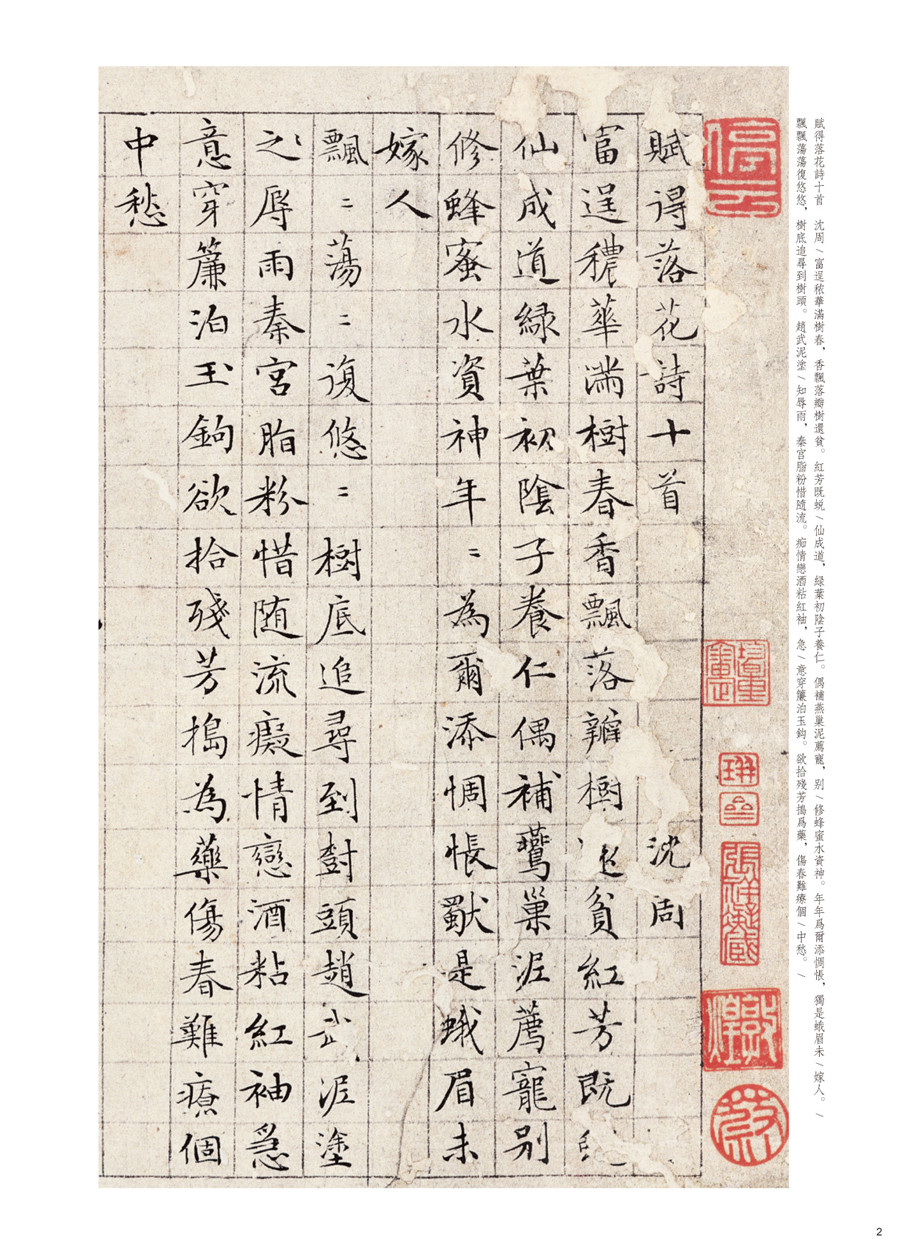 賦得落花詩十首 沈周
富逞穠華滿樹春香飄落瓣樹還貧紅芳既
仙成道綠葉初陰子養仁偶補鷰巢泥薦寵別
修蜂蜜水資神年〻為爾添惆悵獸是蛾眉未
嫁人
飄〻蕩〻復悠〻樹底追尋到樹頭趙武泥塗
之辱雨秦宮脂粉惜随流癡情戀酒粘紅袖急
意穿簾泊玉鉤欲拾殘芳搗為藥傷春難療個
中愁
停雲
賦得落花詩十首 沈周/富逞秾華滿樹春,香飄落瓣樹還貧。紅芳既蜕/仙成道,緑葉初陰子養仁。偶補燕巢泥薦寵,别/修蜂蜜水資神。年年爲爾添惆悵,獨是蛾眉未/嫁人。/
飄飄蕩蕩復悠悠,樹底追尋到樹頭。趙武泥塗/知辱雨,秦宫脂粉惜隨流。痴情戀酒粘紅袖,急/意穿簾泊玉鈎。欲拾殘芳搗爲藥,傷春難療個/中愁。/
2